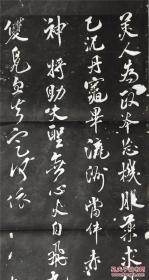 美人為政本忘機服藥求
已泥丹竈畢瀛洲當伴赤
神將助大聖無心火自飛
雙鳧忽去定何依